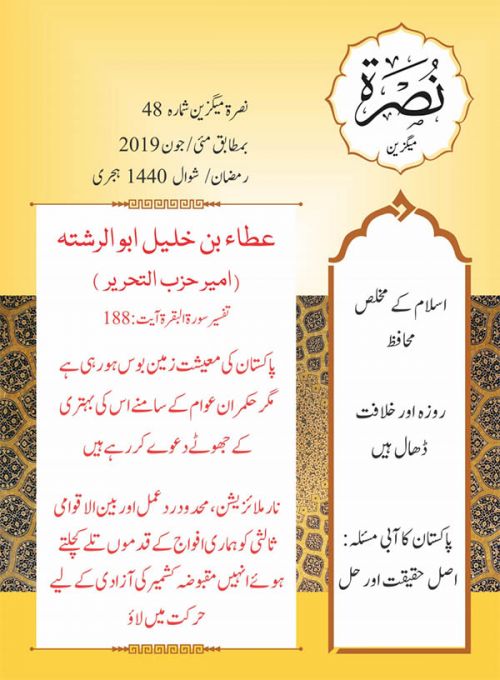 نُصرۃ
میگزین
نصرۃ میگزین شمارہ 48
بمطابق مئی/جون 2019
رمضان/ شوال 1440 ہجری
عطاء بن خلیل ابوالرشتہ
(امیر حزب التحریر)
تفسیر سورۃ البقرۃ آیت:188
پاکستان کی معیشت زمین بوس ہورہی ہے
مگر حکمران عوام کے سامنے اس کی بہتری
کے جھوٹے دعوے کررہے ہیں
نارملائزیشن، محدود ردعمل اور بین الاقوامی
ثالثی کو ہماری افواج کے قدموں تلے کچلتے
ہوئے انہیں مقبوضہ کشمیر کی آزادی کے لیے
حرکت میں لاؤ
اسلام کے مخلص
محافظ
روزہ اور خلافت
ڈھال ہیں
پاکستان کا آبی مسئلہ:
اصل حقیقت اور حل